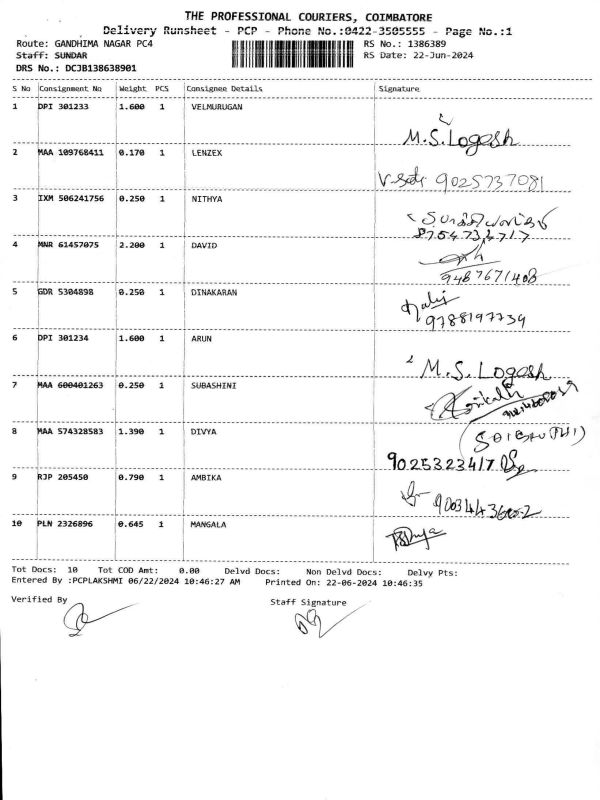 THE PROFESSIONAL COURIERS, COIMBATORE
Delivery Runsheet - PCP - Phone No.:0422-3505555 - Page No.:1
Route: GANDHIMA NAGAR PC4 RS No.: 1386389
Staff: SUNDAR RS Date: 22-Jun-2024
DRS No.: DCJB138638901
S No Consignment No Weight PCS Consignee Details Signature
1 DPI 301233 1.600 1 VELMURUGAN
M.S.Logesh
2 MAA 109768411 0.170 1 LENZEX
9025737081
3 IXM 506241756 0.250 1 NITHYA
4 MNR 61457075 2.200 1 DAVID
9487671408
5 GDR 5304898 0.250 1 DINAKARAN
9788197739
6 DPI 301234 1.600 1 ARUN
M.S. Logesh
7 MAA 600401263 0.250 1 SUBASHINI
8 MAA 574328583 1.390 1 DIVYA
9025323417
9 RJP 205450 0.790 1 AMBIKA
10 PLN 2326896 0.645 1 MANGALA
Tot Docs: 10 Tot COD Amt: 0.00 Delvd Docs: Non Delvd Docs: Delvy Pts:
Entered By :PCPLAKSHMI 06/22/2024 10:46:27 AM Printed On: 22-06-2024 10:46:35
Verified By Staff Signature